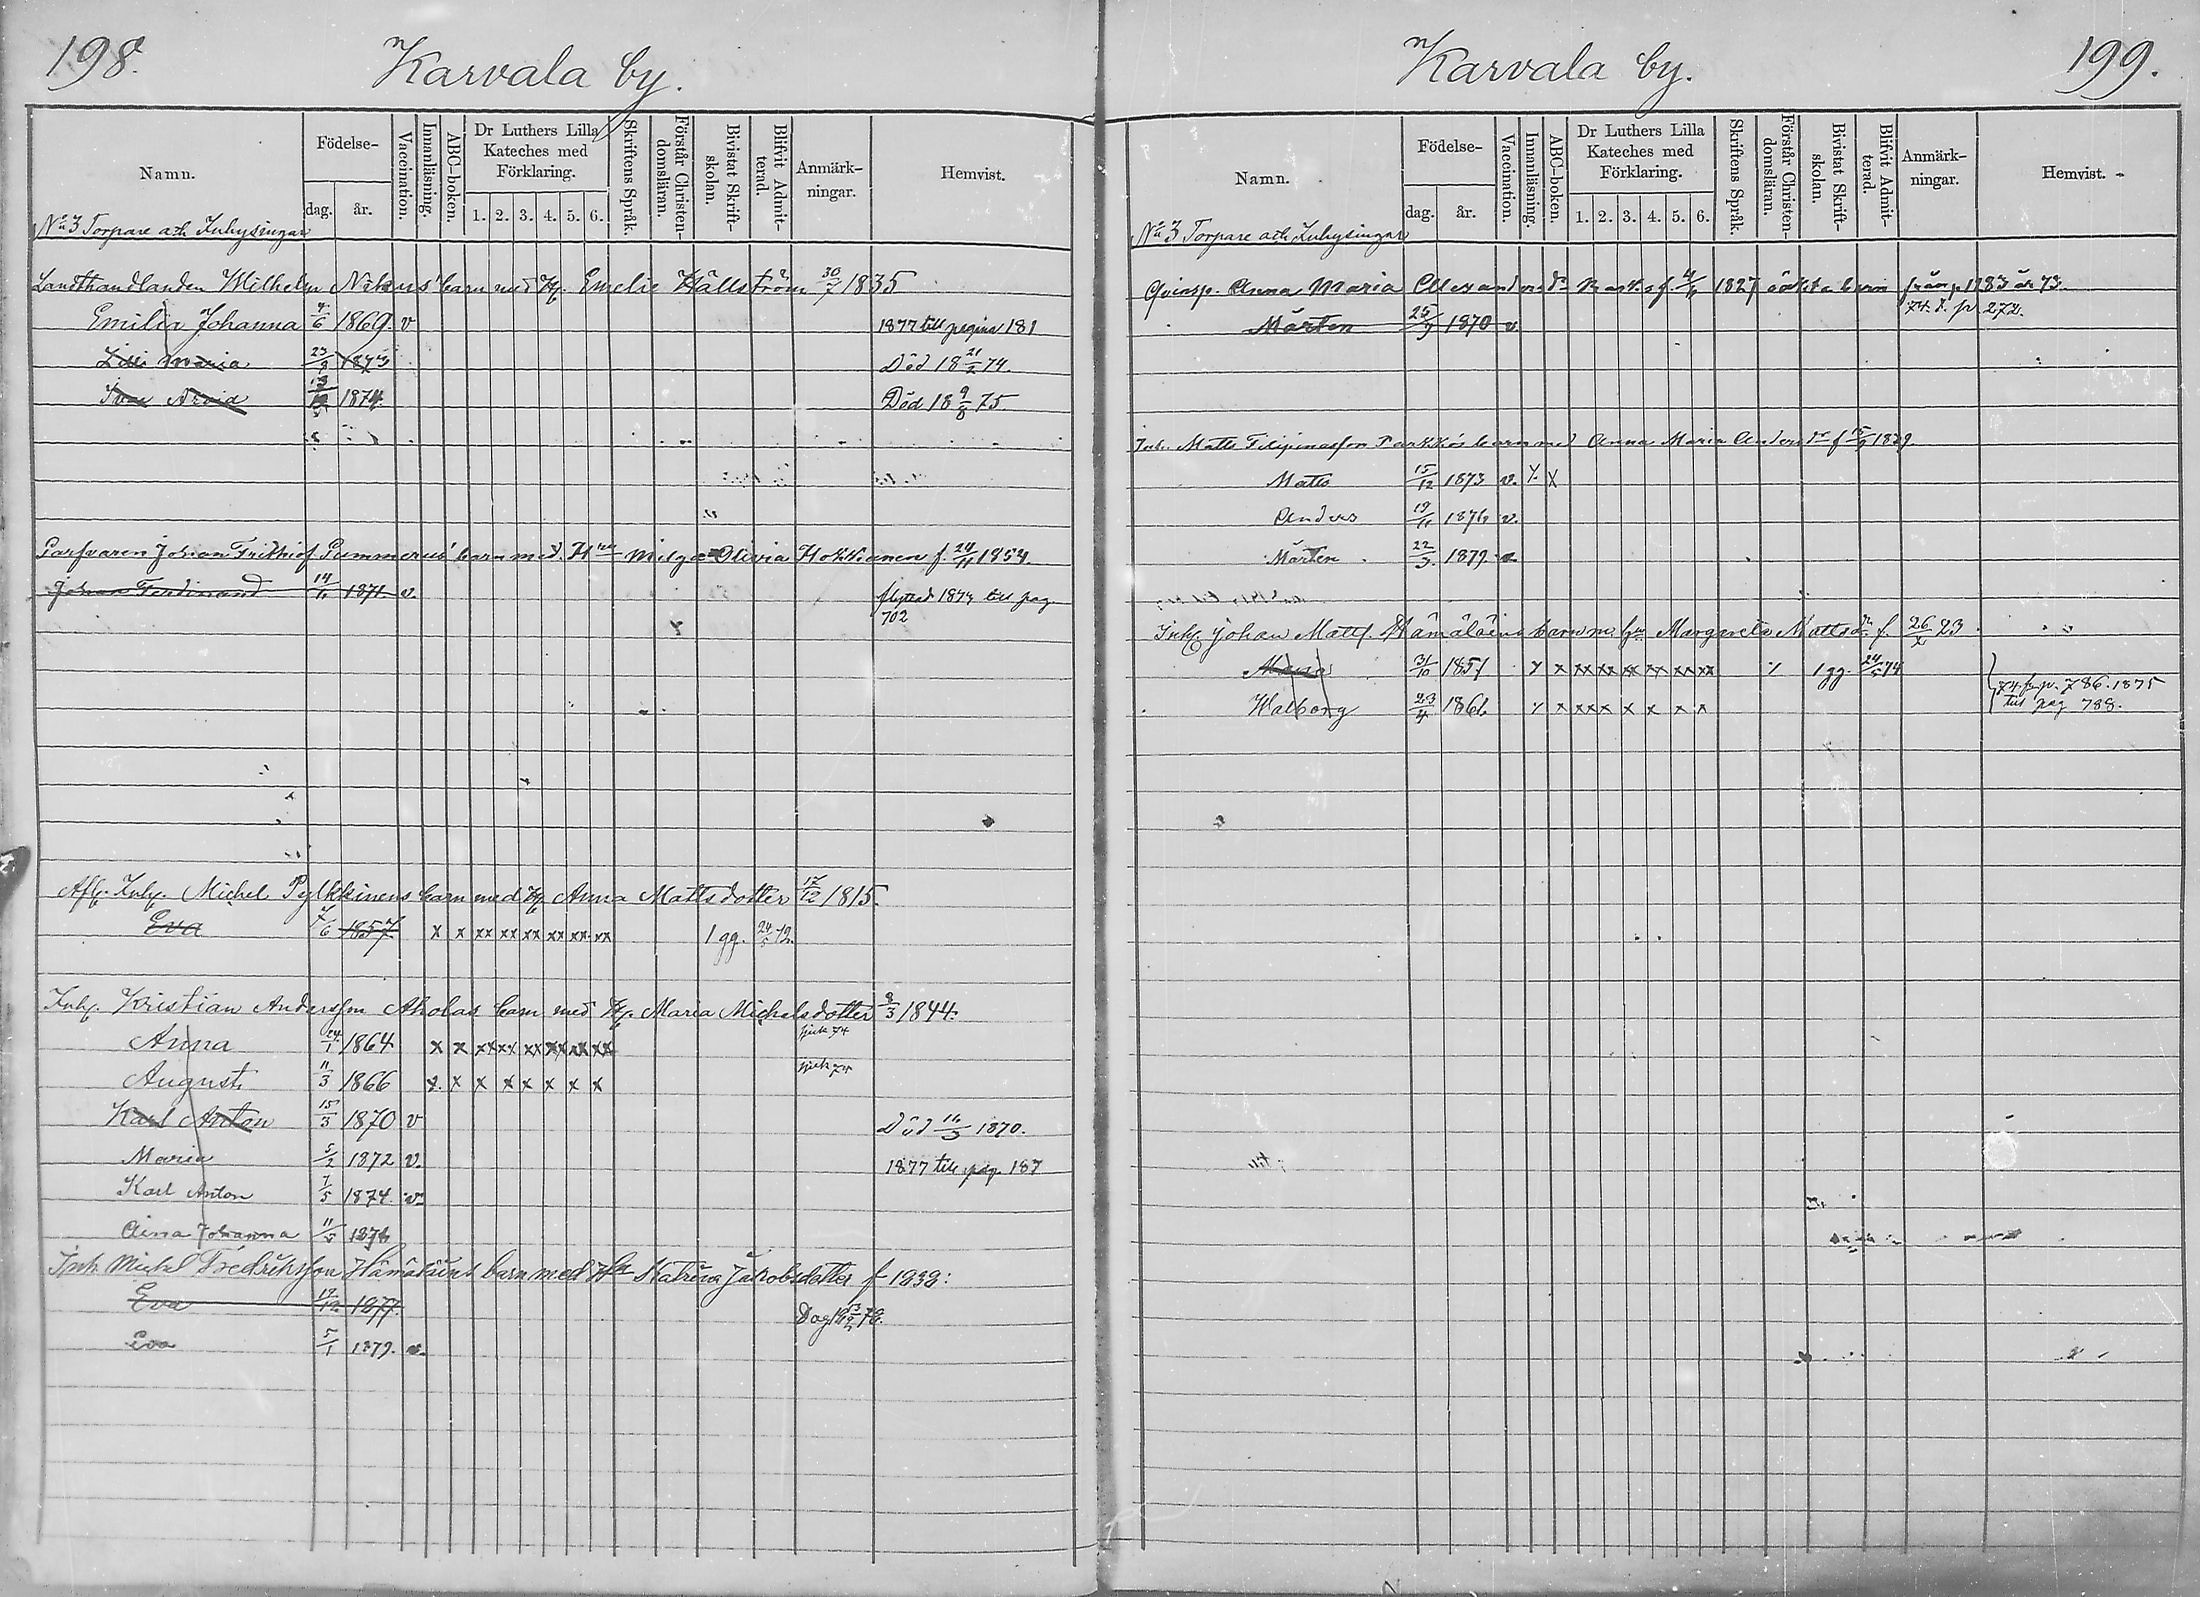 198.
Karvala by.
Namn.
Födelse-
dag.
år.
Vaccination.
Innanläsning.
ABC-boken.
Dr Luthers Lilla
Kateches med
Förklaring.
1. 2. 3. 4. 5. 6.
Skriftens Språk.
Förstår Christen-
domsläran.
Bivistat Skrift-
skolan.
Blifvit Admit-
terad.
Anmärk-
ningar.
Hemvist.
No 3 Torpare och Inhysingar
Landthandlanden Wilhelm barn med Hu. Emelie Hällström 30/7 1835
Emilia Johanna 4/6 1869 v 1877 till pagina 181
Lilli Maria 23/9 1873 Död 18 21/2 74.
Ivar Arvid 1874. Död 18 9/8 75.
Garfvaren Johan Frithiof Pummerus' barn med Olivia Hokkanen f. 24/11 1854.
Johan Ferdinand 14/11 1871. v. flyttad 1874 till pag
702
Afl. Inh. Michel Pylkkinens barn med Hu Anna Mattsdotter 17/12 1815.
Eva 7/6 1857 x x xx xx xx xx xx xx 1 gg. 24/5 72.
Inh. Kristian Andersson Aholas barn med Hu. Maria Michelsdotter 8/3 1844.
Anna 24/1 1864 x x xx xx xx xx xx xx
August 11/3 1866 x. x x x x x x x
Karl Anton 15/3 1870 v Död 1870.
Maria 5/2 1872 v. 1877 till pag. 187
Karl Anton 7/5 1874 v.
Aina Johanna 11/5 1876
Inh. Michel Fredriksson barn med Katrina Jakobsdotter f 1838:
Eva 19/12 1877
Eva 5/1 1879. v.
Karvala by.
199.
Namn.
Födelse-
dag.
år.
Vaccination.
Innanläsning.
ABC-boken.
Dr Luthers Lilla
Kateches med
Förklaring.
1. 2. 3. 4. 5. 6.
Skriftens Språk.
Förstår Christen-
domsläran.
Bivistat Skrift-
skolan.
Blifvit Admit-
terad.
Anmärk-
ningar.
Hemvist.
No 3 Torpare och Inhysingar
Qvinsp. Anna Maria Alexandersdr 1827 oäkta barn från p 1183 år 73.
74. t. p. 272.
Mårten 1870 v.
Inh. Matts barn med Anna Maria Andersdr f 1839.
Matts 15/12 1873 v. x x
Anders 19/11 1876 v.
Mårten 22/3 1879. v.
Inh. Johan Matts. Hämäläins barn m. hu. Margareta Mattsdr f. 26/2 23
Maria 31/10 1851 x x xx xx xx xx xx xx 1 gg. 24/5 74
Walborg 23/4 1861 x x xxx x x x x
74 fr. p. 786. 1875
till pag 788.